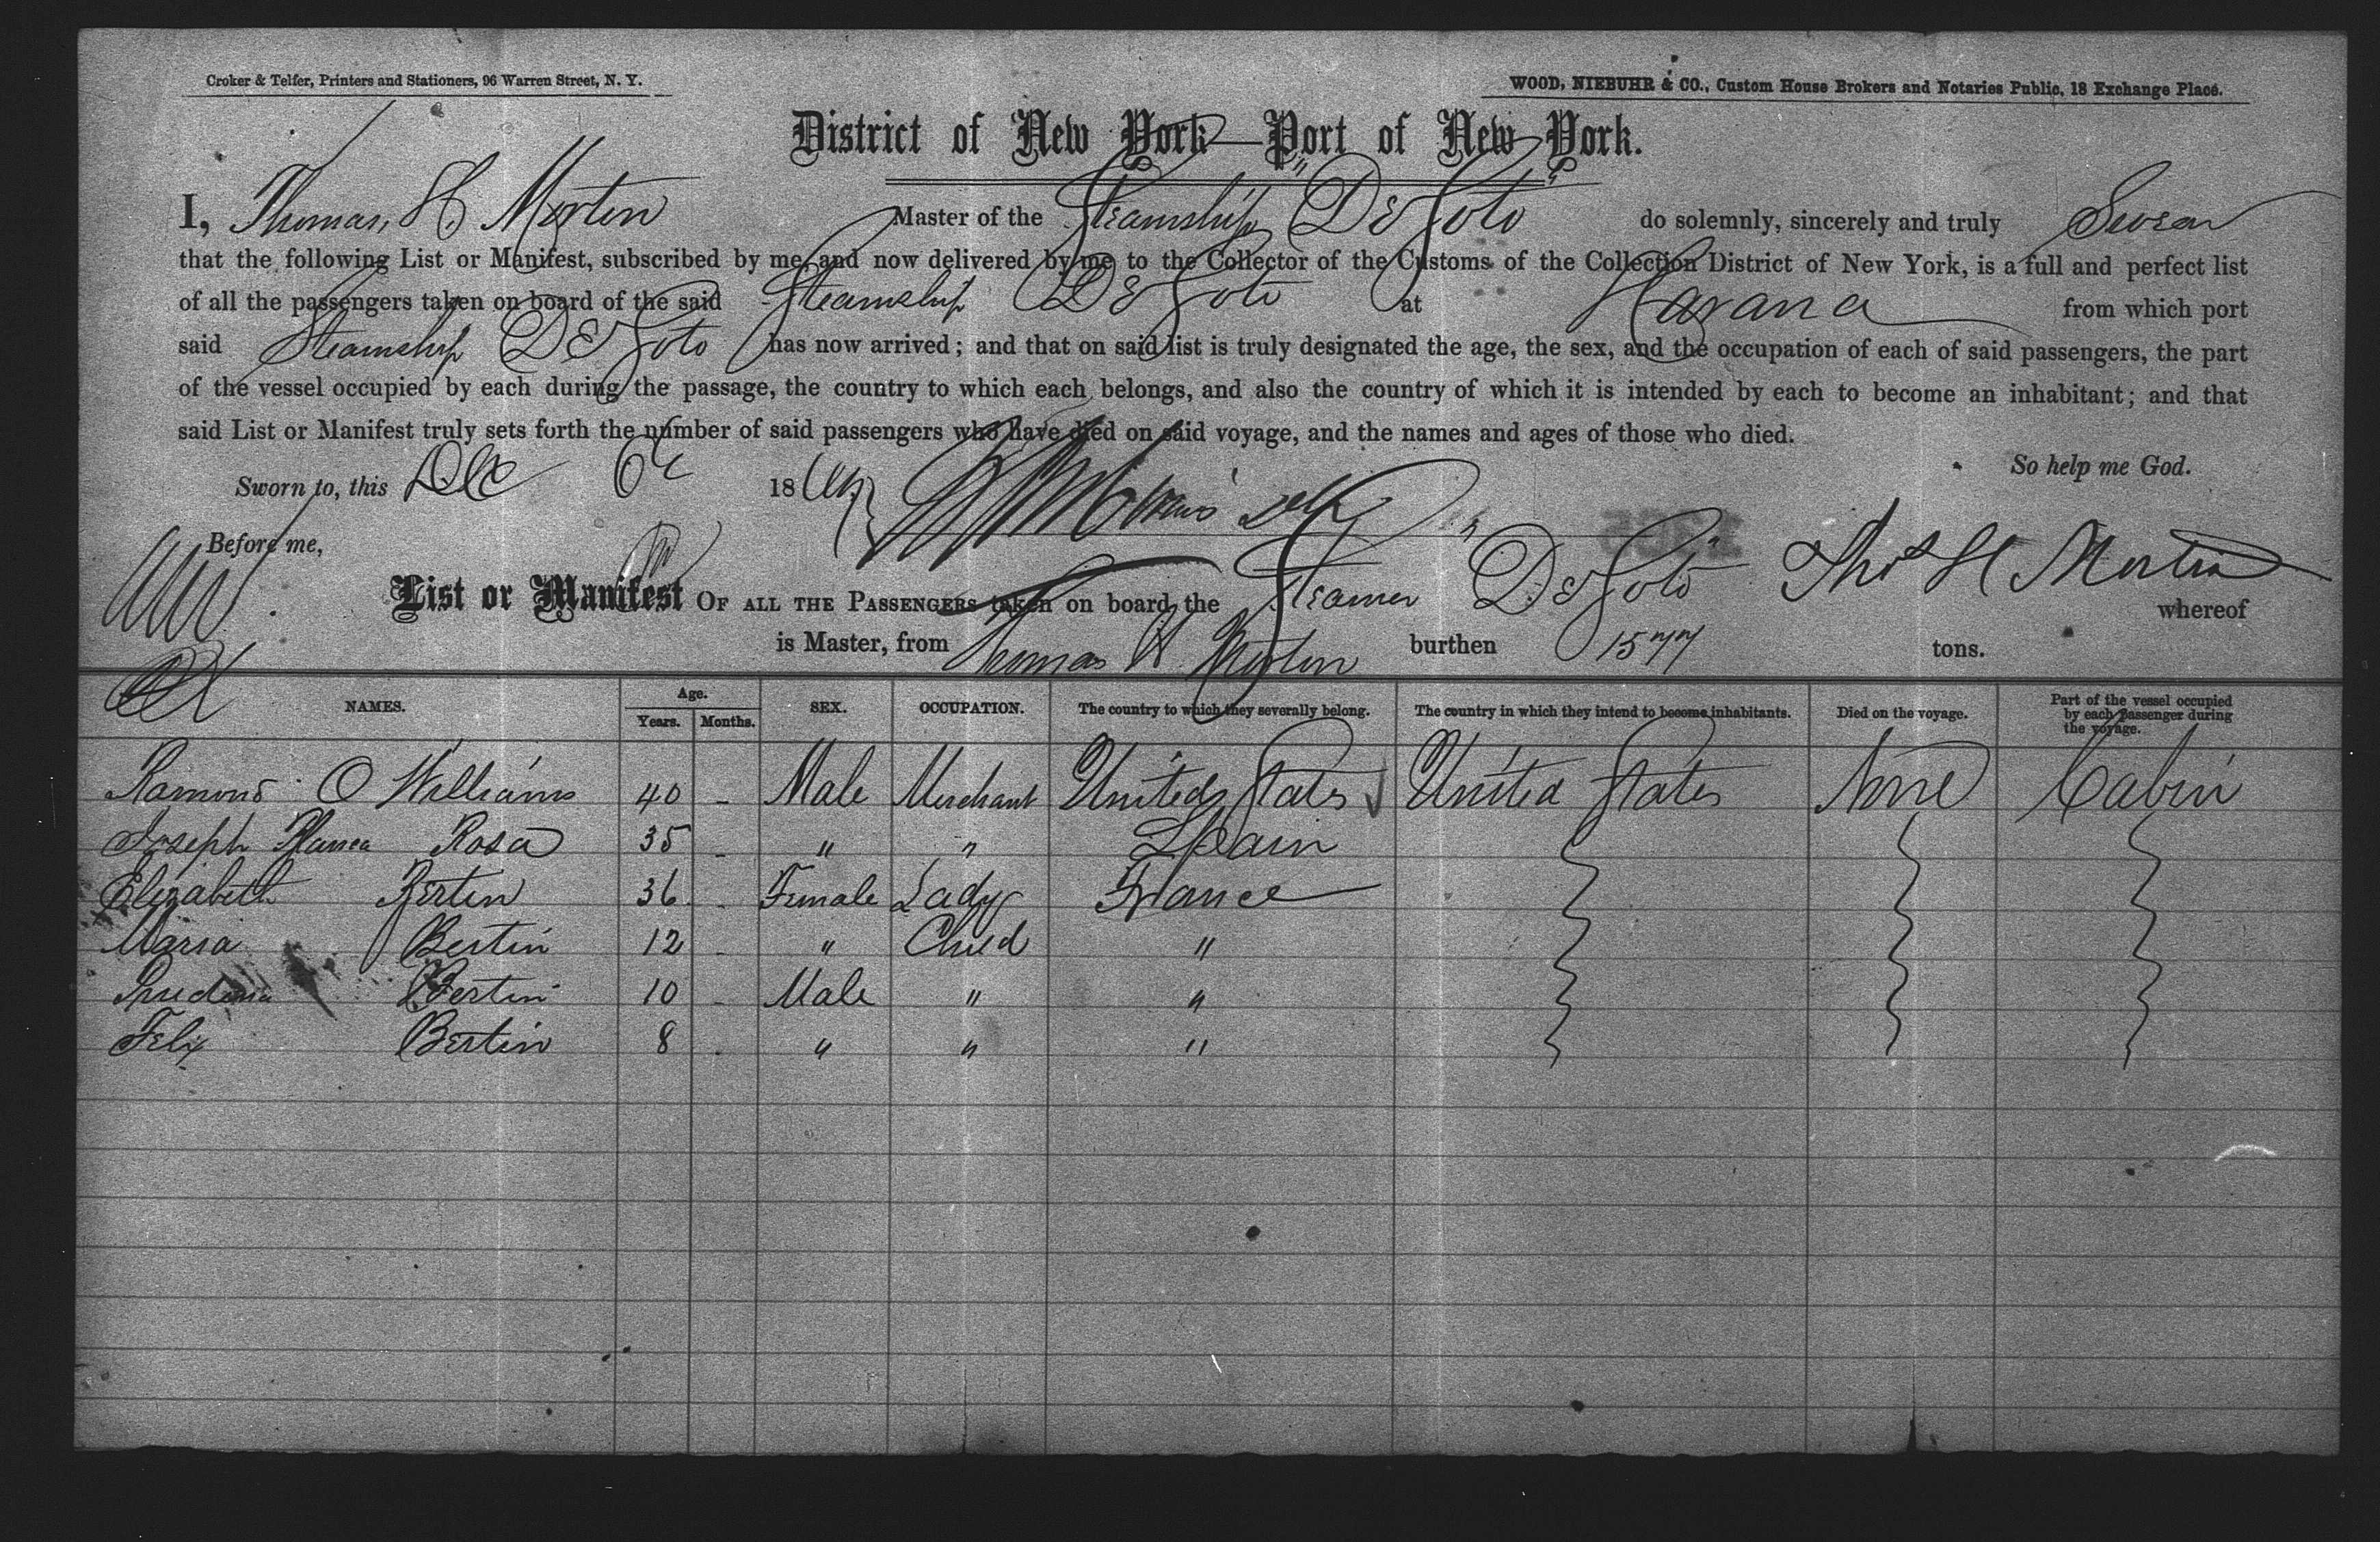 Croker & Telfer, Printers and Stationers, 96 Warren Street, N. Y.
WOOD, NIEBUHR & CO., Custom House Brokers and Notaries Public, 18 Exchange Place.
District of New York—Port of New York.
I, Thomas, H Morton Master of the Steamship De Soto do solemnly, sincerely and truly Swear
that the following List or Manifest, subscribed by me, and now delivered by me to the Collector of the Customs of the Collection District of New York, is a full and perfect list
of all the passengers taken on board of the said Steamship De Soto at Havana from which port
said Steamship De Soto has now arrived; and that on said list is truly designated the age, the sex, and the occupation of each of said passengers, the part
of the vessel occupied by each during the passage, the country to which each belongs, and also the country of which it is intended by each to become an inhabitant; and that
said List or Manifest truly sets forth the number of said passengers who have died on said voyage, and the names and ages of those who died.
So help me God.
Sworn to, this Dec 18
Before me,
Thos H Morton
List or Manifest OF ALL THE PASSENGERS taken on board the Steamer De Soto whereof
is Master, from Thomas H. Morton burthen 1577 tons.
NAMES. Age. Years. Months. SEX. OCCUPATION. The country to which they severally belong. The country in which they intend to become inhabitants. Died on the voyage. Part of the vessel occupied by each passenger during the voyage.
O Williams 40 - Male Merchant United States United States None Cabin
Joseph Rosa 35 - " " Spain
Elizabeth Bertin 36 - Female Lady France
Maria Bertin 12 - " Child "
Bertin 10 - Male " "
Felix Bertin 8 - " " "